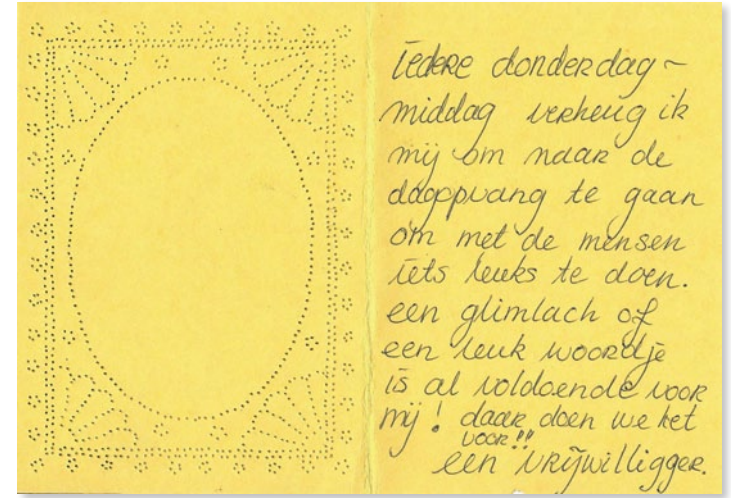 iedere donderdag-
middag verheug ik
mij om naar de
dagopvang te gaan
om met de mensen
iets leuks te doen.
een glimlach of
een leuk woordje
is al voldoende voor
mij! daar doen we het
voor!!
een vrijwilligger.